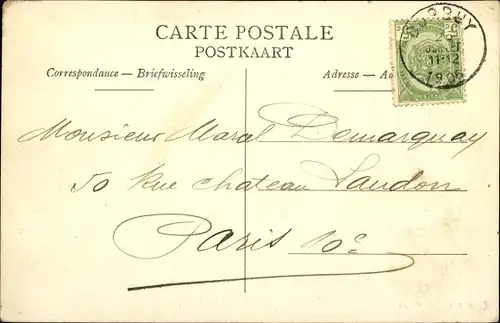 CARTE POSTALE
POSTKAART
Correspondance — Briefwisseling
Adresse —
DURBUY
11-12
1905
Monsieur Marcel Demarquay
50 Rue Chateau Landon
Paris 10e